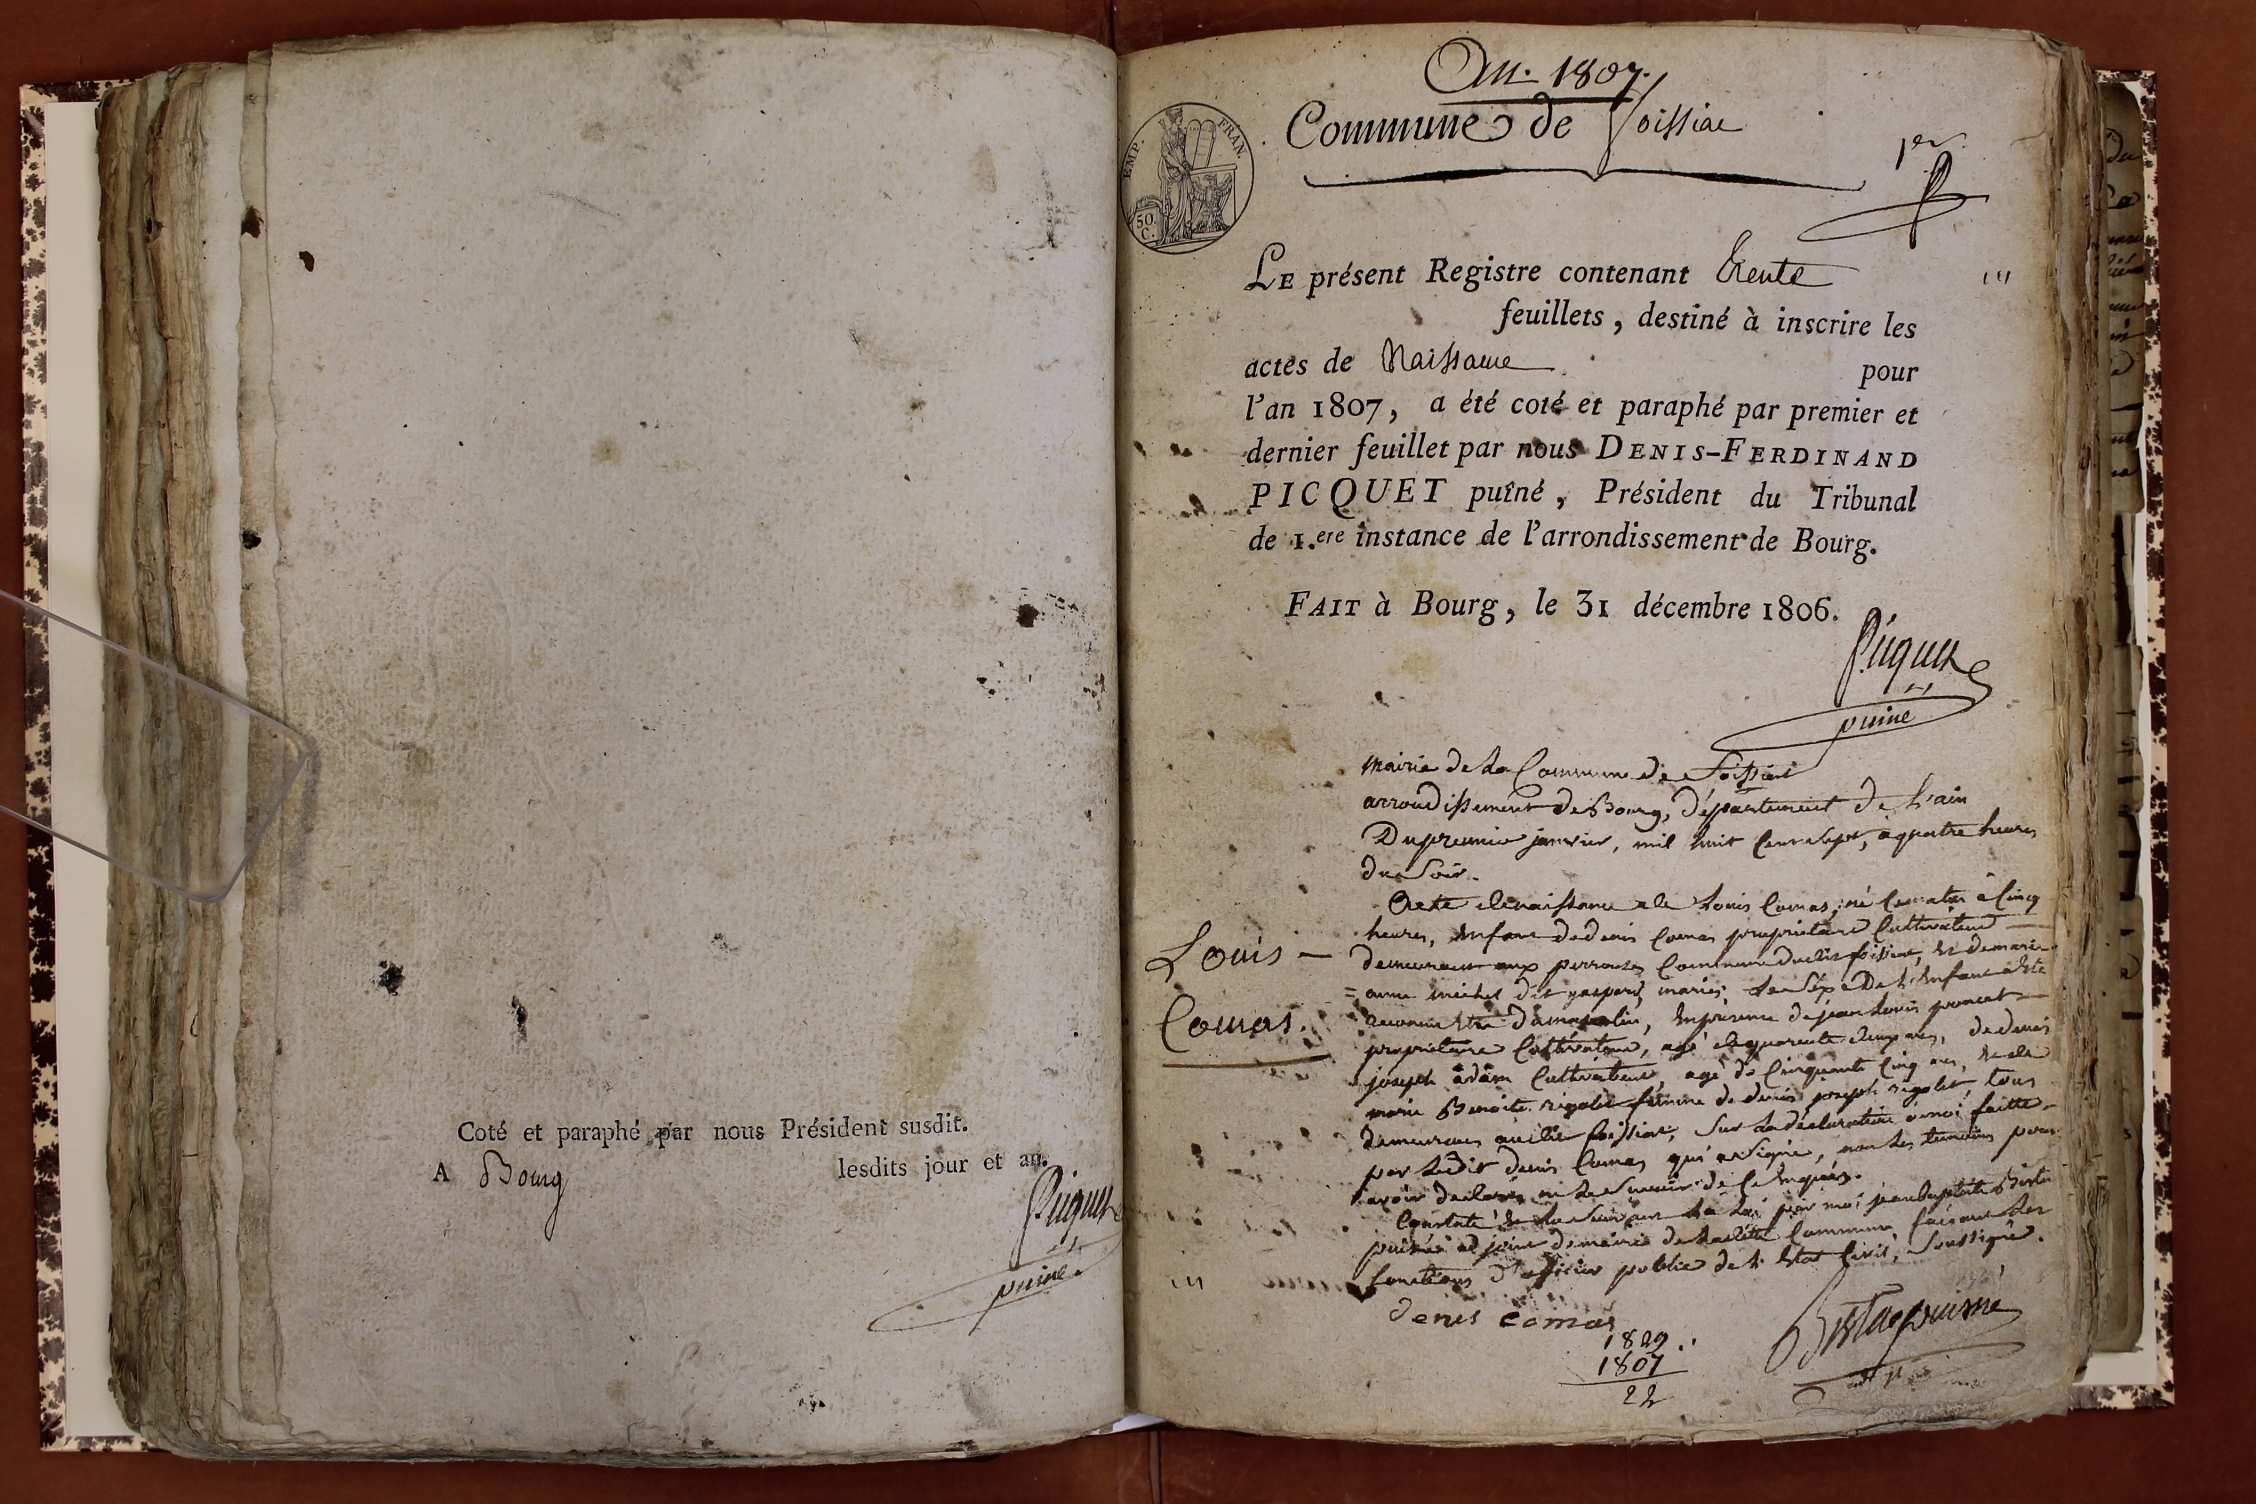 Coté et paraphé par nous Président susdit.
A Bourg lesdits jour et an.
Picquet
puiné
An. 1807.
Commune de Foissiac
1er
EMP. FRAN.
50 C.
LE présent Registre contenant Trente
feuillets, destiné à inscrire les
actes de Naissance pour
l'an 1807, a été coté et paraphé par premier et
dernier feuillet par nous DENIS-FERDINAND
PICQUET puîné, Président du Tribunal
de 1.ere instance de l'arrondissement de Bourg.
FAIT à Bourg, le 31 décembre 1806.
Picquet
puiné
Mairie de La Commune de Foissiat
arrondissement de Bourg, Département de L'ain
Du premier janvier, mil huit Cent Sept, à quatre heures
du Soir.
Louis
Comas.
Acte de naissance de Louis Comas, né Ce matin à Cinq
heures, Enfant de denis Comas proprietaire Cultivateur
demeurant aux perrouses Commune dudit foissiat, et de marie
= anne michel dit gaspard, mariés; Le Séxe De L'Enfant a Eté
reconnu Etre du masculin, En presence de jean Louis poncet
proprietaire Cultivateur, agé de quarente deux ans, de denis
joseph adam Cultivateur, agé de Cinquante Cinq ans, et de
marie Benoite rigolet femme de denis joseph rigolet tous
demeurans audit foissiat, Sur La déclaration à moi faitte
par Ledit denis Comas qui a Signé, non Les temoins pour
avoir declarés ne Le Savoir de Ce Enquis.
Constaté Suivant La Loi par moi jean baptiste
puisné adjoint du maire de Ladite Commune faisant Les
fonctions d'officier public de L'Etat Civil, Soussigné.
denis comas
1829
1807
22